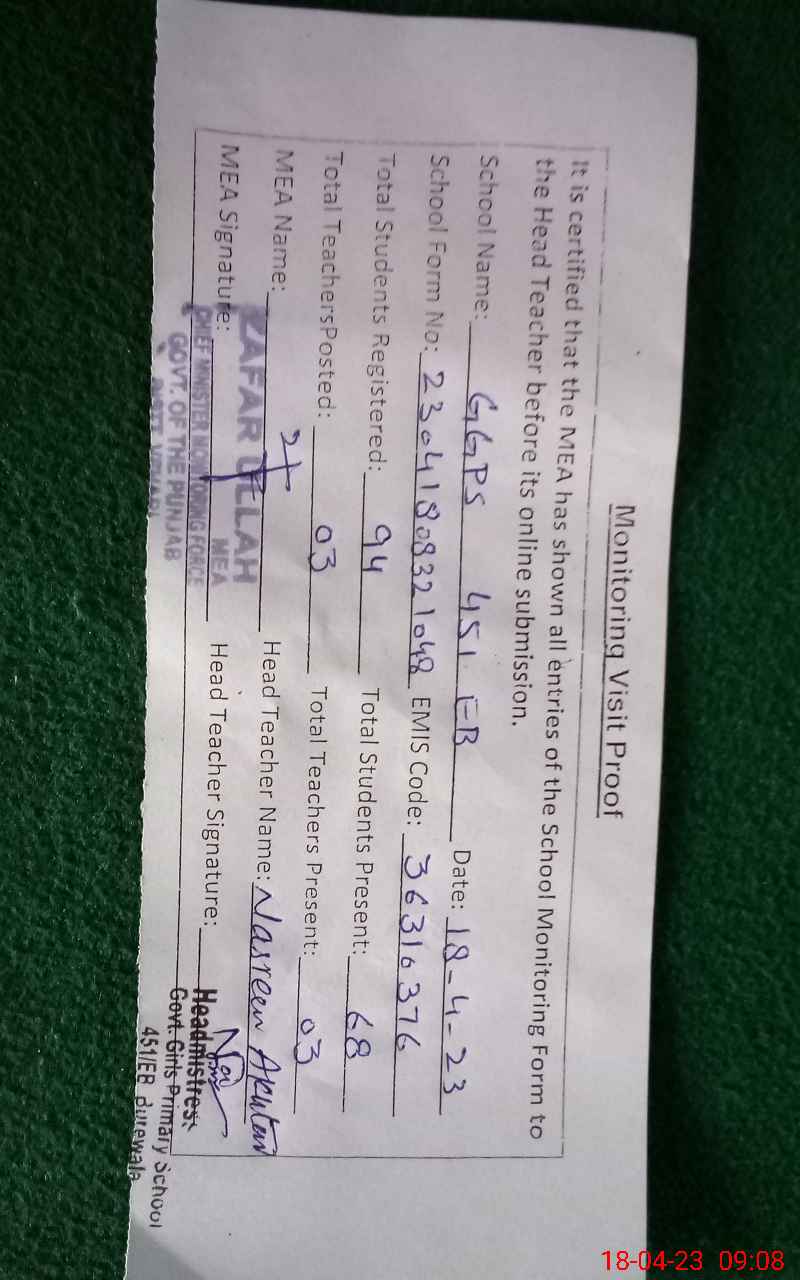 Monitoring Visit Proof
It is certified that the MEA has shown all entries of the School Monitoring Form to
the Head Teacher before its online submission.
School Name: GGPS 451 EB Date: 18-4-23
School Form No: 23041808321048 EMIS Code: 36316376
Total Students Registered: 94 Total Students Present: 68
Total TeachersPosted: 03 Total Teachers Present: 03
MEA Name: Head Teacher Name: Nasreen Akhtar
ZAFAR ULLAH
MEA
MEA Signature: Head Teacher Signature:
CHIEF MINISTER MONITORING FORCE
GOVT. OF THE PUNJAB
DISTT. VEHARI
Headmistres
Govt. Girls Primary School
451/EB Burewala
18-04-23 09:08